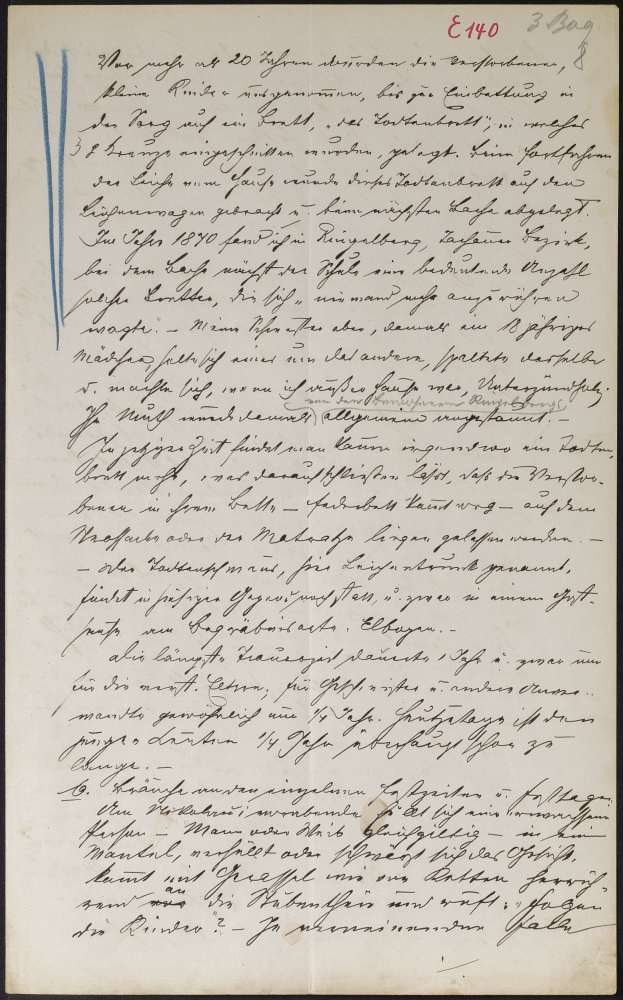 E 140 3 Bog
8
Vor mehr als 20 Jahren wurden die Verstorbenen,
kleine Kinder ausgenommen, bis zur Einbettung in
den Sarg auf ein Brett, „das Todtenbrett", in welches
3 Kreuze eingeschnitten wurden, gelegt. Beim Fortfahren
der Leiche vom Hause wurde dieses Todtenbrett auf den
Leichenwagen gebracht u. beim nächsten Bache abgelegt.
Im Jahre 1870 fand ich in Ringelberg, Tachauer Bezirk,
bei dem Bache nächst der Schule eine bedeutende Anzahl
solcher Bretter, die sich „niemand mehr anzurühren
wagte". – Meine Schwester aber, damals ein 18 jähriges
Mädchen, holte sich eines um das andere, spaltete dasselbe
u. machte sich, wenn ich außer Hause war, Unterzündholz.
von den Bewohnern Ringelbergs
Ihr Muth wurde damals allgemein angestaunt. –
In jetziger Zeit findet man kaum irgendwo ein Todten-
brett mehr, was darauf schließen läßt, daß die Verstor-
benen in ihrem Bette – Federbett kommt weg – auf dem
Strohsacke oder der Matratze liegen gelassen werden. –
– Der Todtenschmaus, hier Leichentrunk genannt,
findet in hiesiger Gegend noch statt, u. zwar in einem Gast-
hause am Begräbnisorte. Elbogen. –
Die längste Trauerzeit dauerte 1 Jahr u. zwar nur
für die verst. Eltern; für Geschwister u. andere Anver-
wandte gewöhnlich nur 1/4 Jahr. Heutzutage ist den
jungen Leuten 1/4 Jahr überhaupt schon zu
lange. –
6. Bräuche an den einzelnen Festzeiten u. Festtagen.
Am Nikolausvorabende hüllt sich eine erwachsene
Person – Mann oder Weib gleichgiltig – in einen
Mantel, verhüllt oder schwärzt sich das Gesicht,
kommt mit Gerassel wie von Ketten herrüh-
rend an die Stubenthür und ruft: „Folgen
die Kinder"? – Im verneinenden Falle